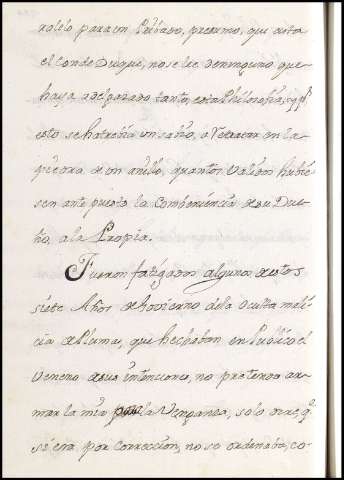 ralelo para un Pribado, presumo, que asta
el Conde Duque, no se lee de ninguno, que
haya adelgazado tanto esta Philosofia; y p.r
esto se hatrebia un sabio, a retratar en la
piedra de un anillo, quantos Validos hubie-
sen ante puesto la Combeniencia de su Due-
ño, a la Propia.
Fueron fatigados algunos de estos
siete Años de Govierno de la Oculta mali-
cia de Pluma, que hechaban en Publico el
Veneno de sus intenciones, no pretendo ar-
mar la mia para la Venganza, solo dire, q.e
si era por Correccion, no se ordenaba, co-